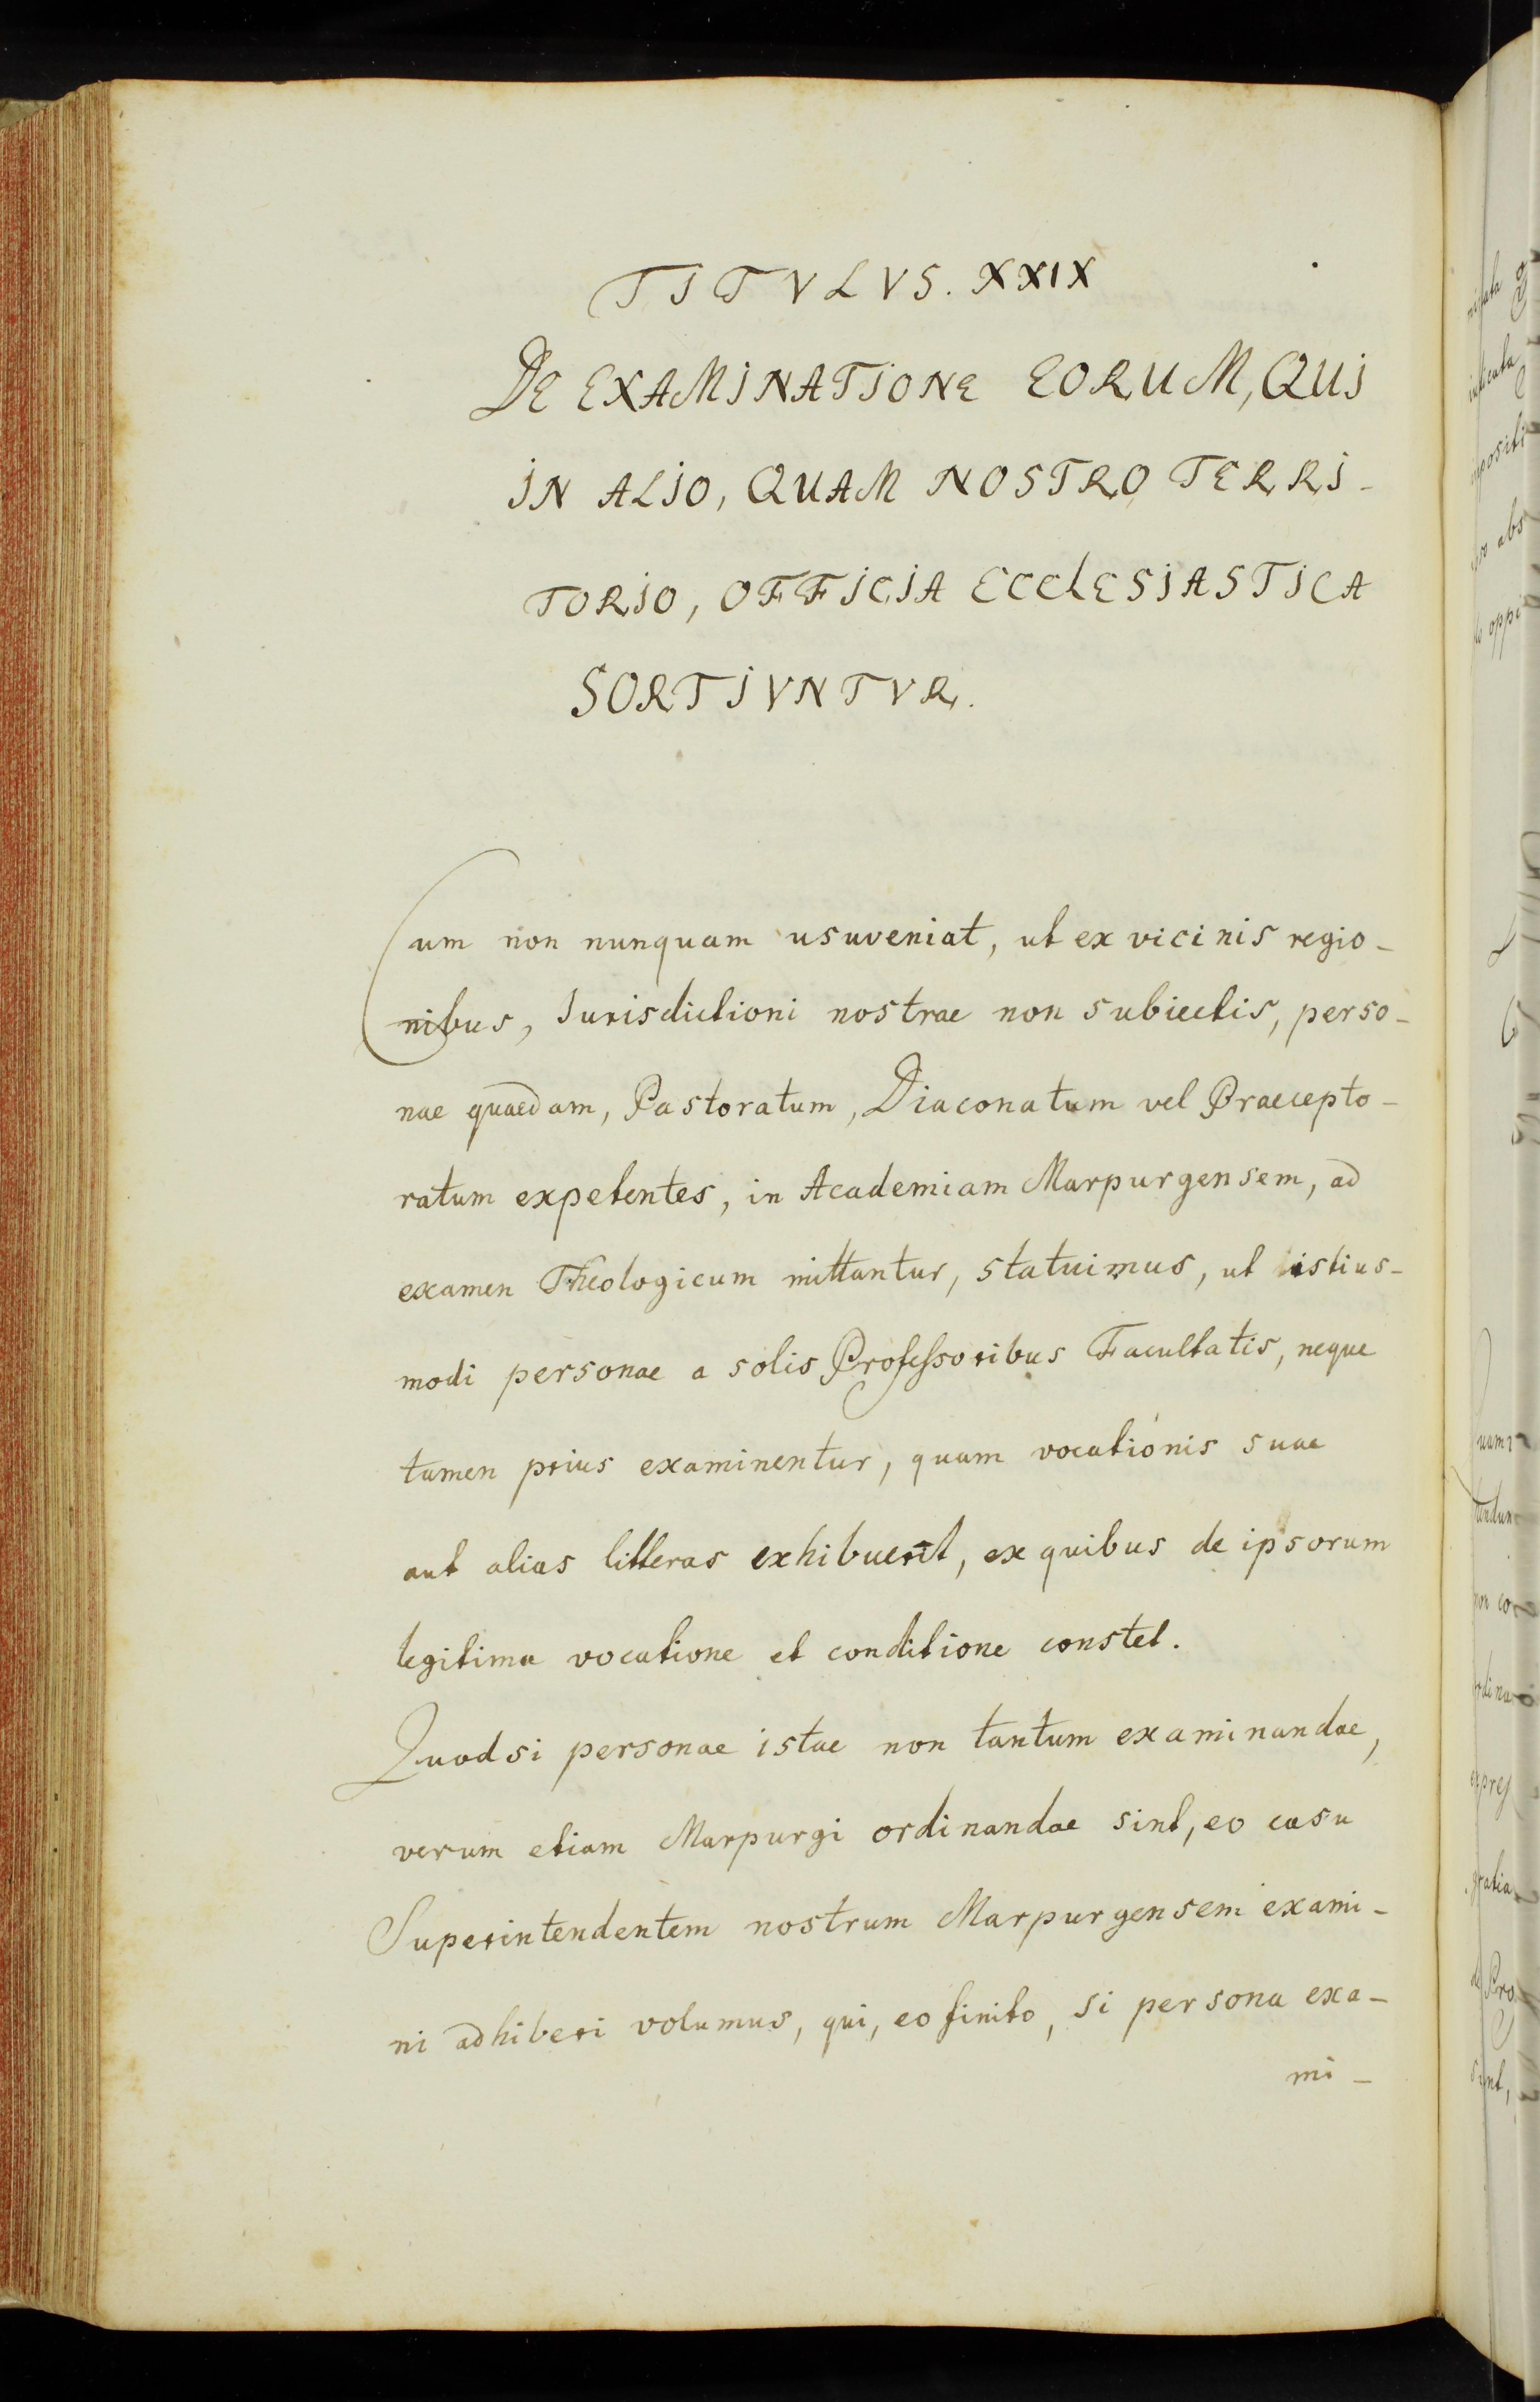 TITVLVS. XXIX
DE EXAMINATIONE EORUM, QUI
IN ALIO, QUAM NOSTRO TERRI-
TORIO, OFFICIA ECCLESIASTICA
SORTIVNTVR.
Cum non nunquam usuveniat, ut ex vicinis regio-
nibus, Jurisdictioni nostrae non subiectis, perso-
nae quaedam, Pastoratum, Diaconatum vel Praecepto-
ratum expetentes, in Academiam Marpurgensem, ad
examen Theologicum mittantur, statuimus, ut istius-
modi personae a solis Professoribus Facultatis, neque
tamen prius examinentur, quam vocationis suae
aut alias litteras exhibuerit, ex quibus de ipsorum
legitima vocatione et conditione constet.
Quodsi personae istae non tantum examinandae,
verum etiam Marpurgi ordinandae sint, eo casu
Superintendentem nostrum Marpurgensem exami-
ni adhiberi volumus, qui, eo finito, si persona exa-
mi-